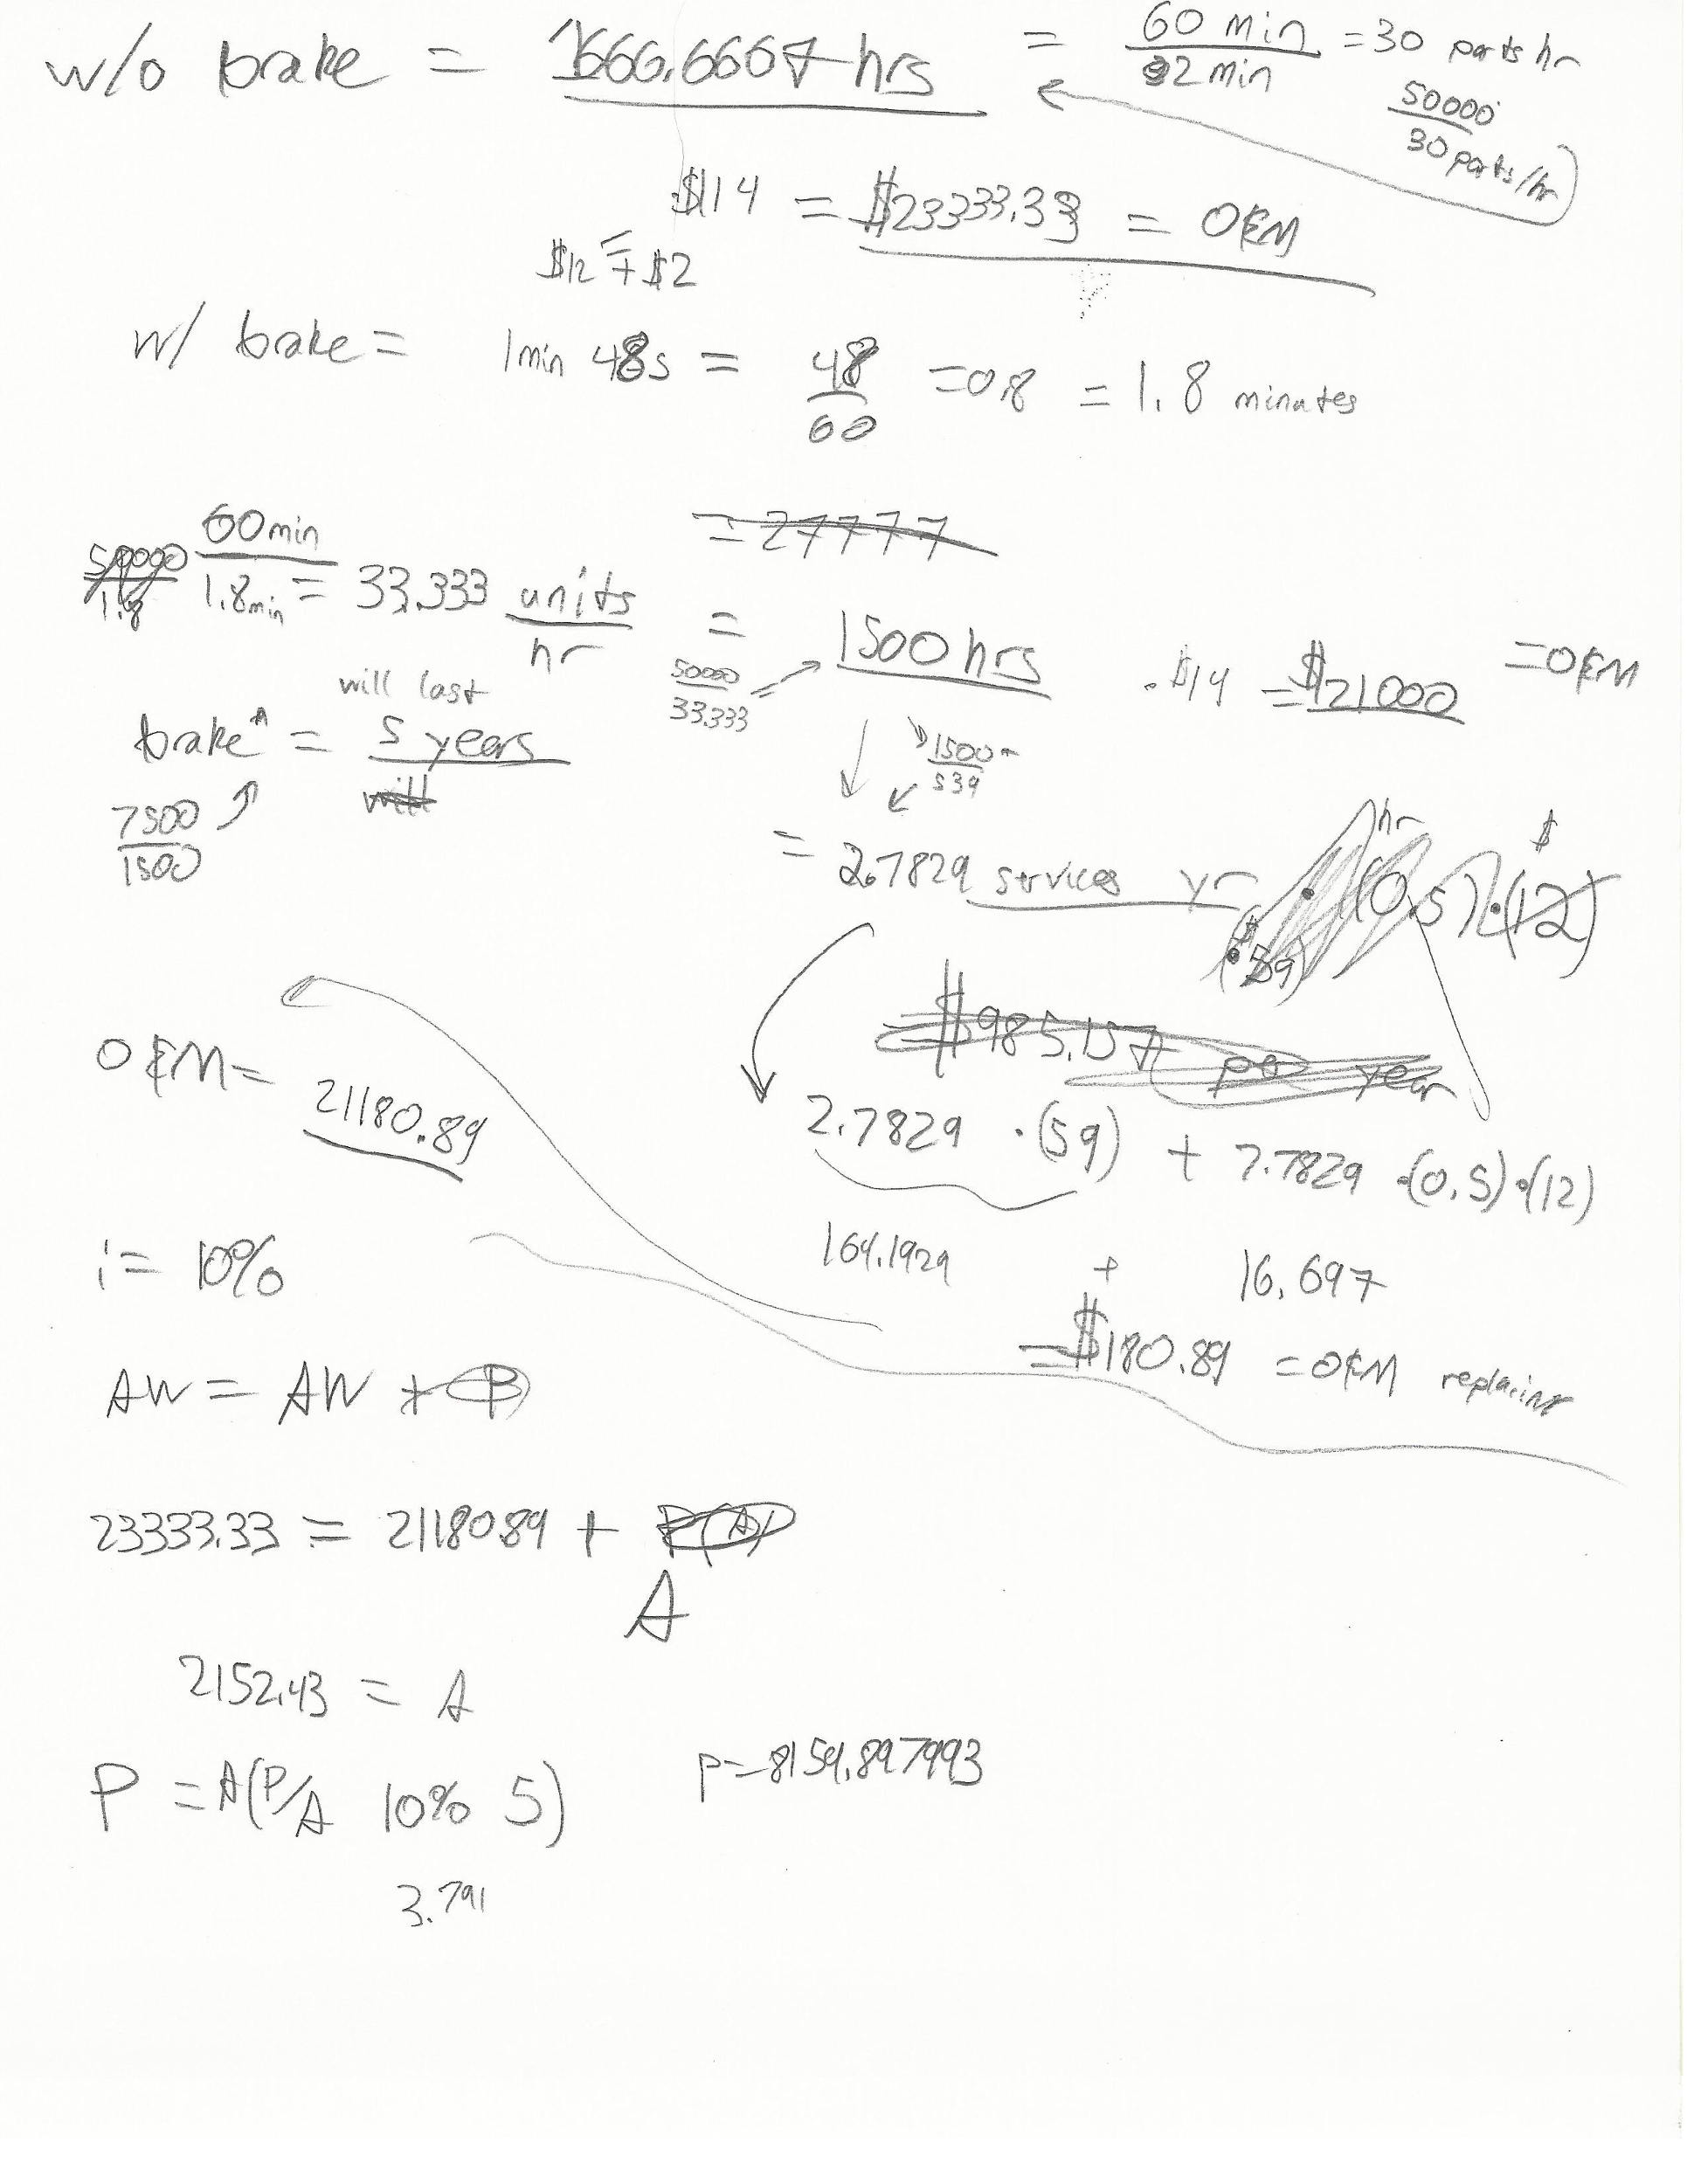 w/o brake = 1666.6667 hrs = 60 min / 2 min = 30 parts hr
50000 / 30 parts/hr
· $14 = $23333.33 = O&M
$12 + $2
w/ brake = 1min 48s = 48 / 60 = 0.8 = 1.8 minutes
= 27777
50000 / 1.8
60min / 1.8min = 33.333 units / hr = 1500 hrs · $14 = $21000 = O&M
50000 / 33.333 =
will last
brake = 5 years
will
7500 / 1500
1500 / 539
= 2.7829 services yr
hr $
($59) · (0.5) · (12)
$985.157 per year
O&M = 21180.89
2.7829 · (59) + 2.7829 · (0.5) · (12)
164.1929 + 16.697
= $180.89 = O&M replacing
i = 10%
AW = AW + P
23333.33 = 21180.89 + P(A/P)
A
2152.43 = A
P = A(P/A 10% 5)
3.791
P = 8159.897993